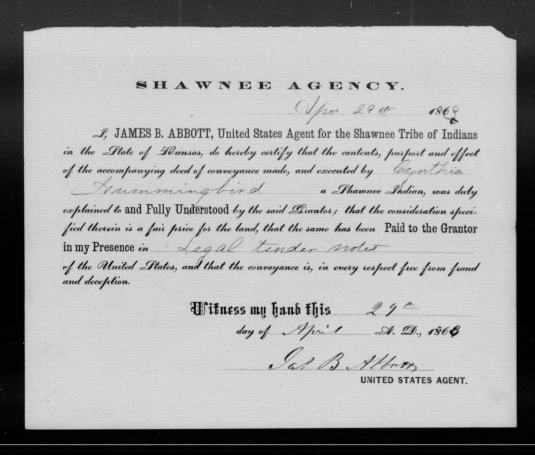 SHAWNEE AGENCY.
Apr. 29th 1868
I, JAMES B. ABBOTT, United States Agent for the Shawnee Tribe of Indians
in the State of Kansas, do hereby certify that the contents, purport and effect
of the accompanying deed of conveyance made, and executed by Cynthia
Hummingbird a Shawnee Indian, was duly
explained to and Fully Understood by the said Grantor; that the consideration speci-
fied therein is a fair price for the land, that the same has been Paid to the Grantor
in my Presence in Legal tender notes
of the United States, and that the conveyance is, in every respect free from fraud
and deception.
Witness my hand this 29th
day of April A. D., 1868
Jas B Abbott
UNITED STATES AGENT.